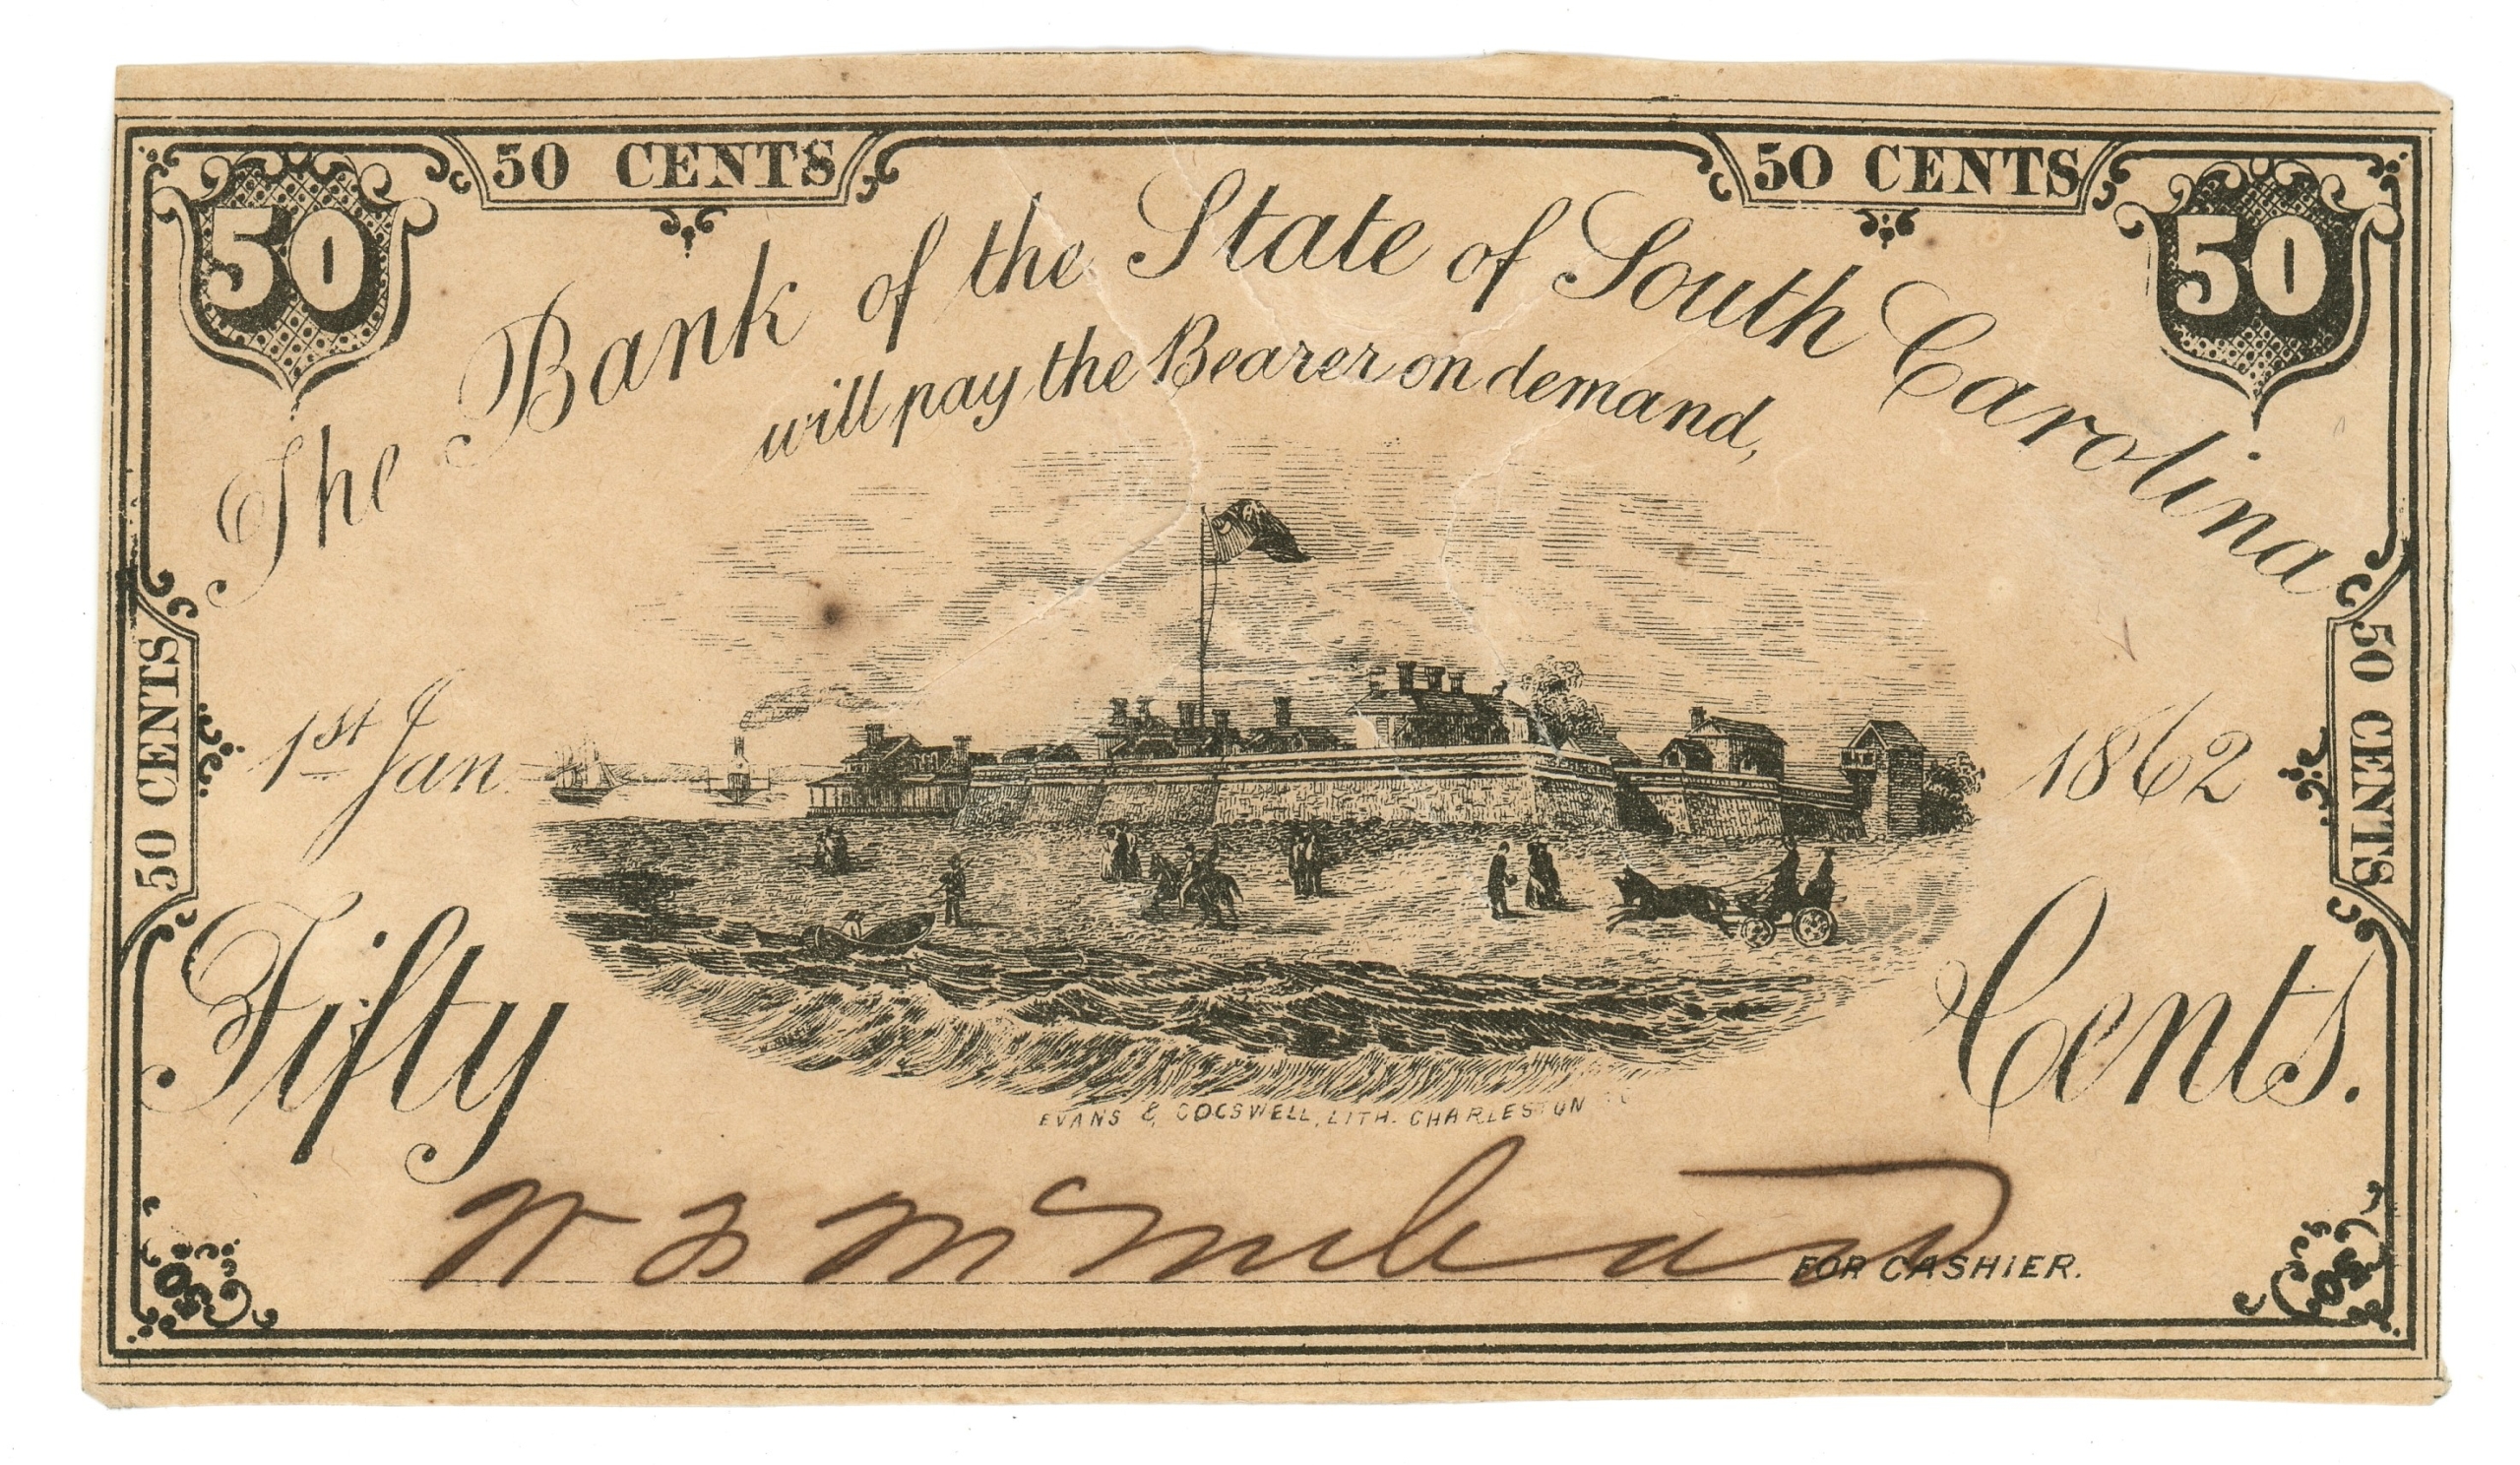 50 CENTS
50 CENTS
50
50
The Bank of the State of South Carolina
will pay the Bearer on demand,
50 CENTS
1st Jan
1862
50 CENTS
Fifty
Cents.
EVANS & COGSWELL, LITH. CHARLESTON
FOR CASHIER.
50
50